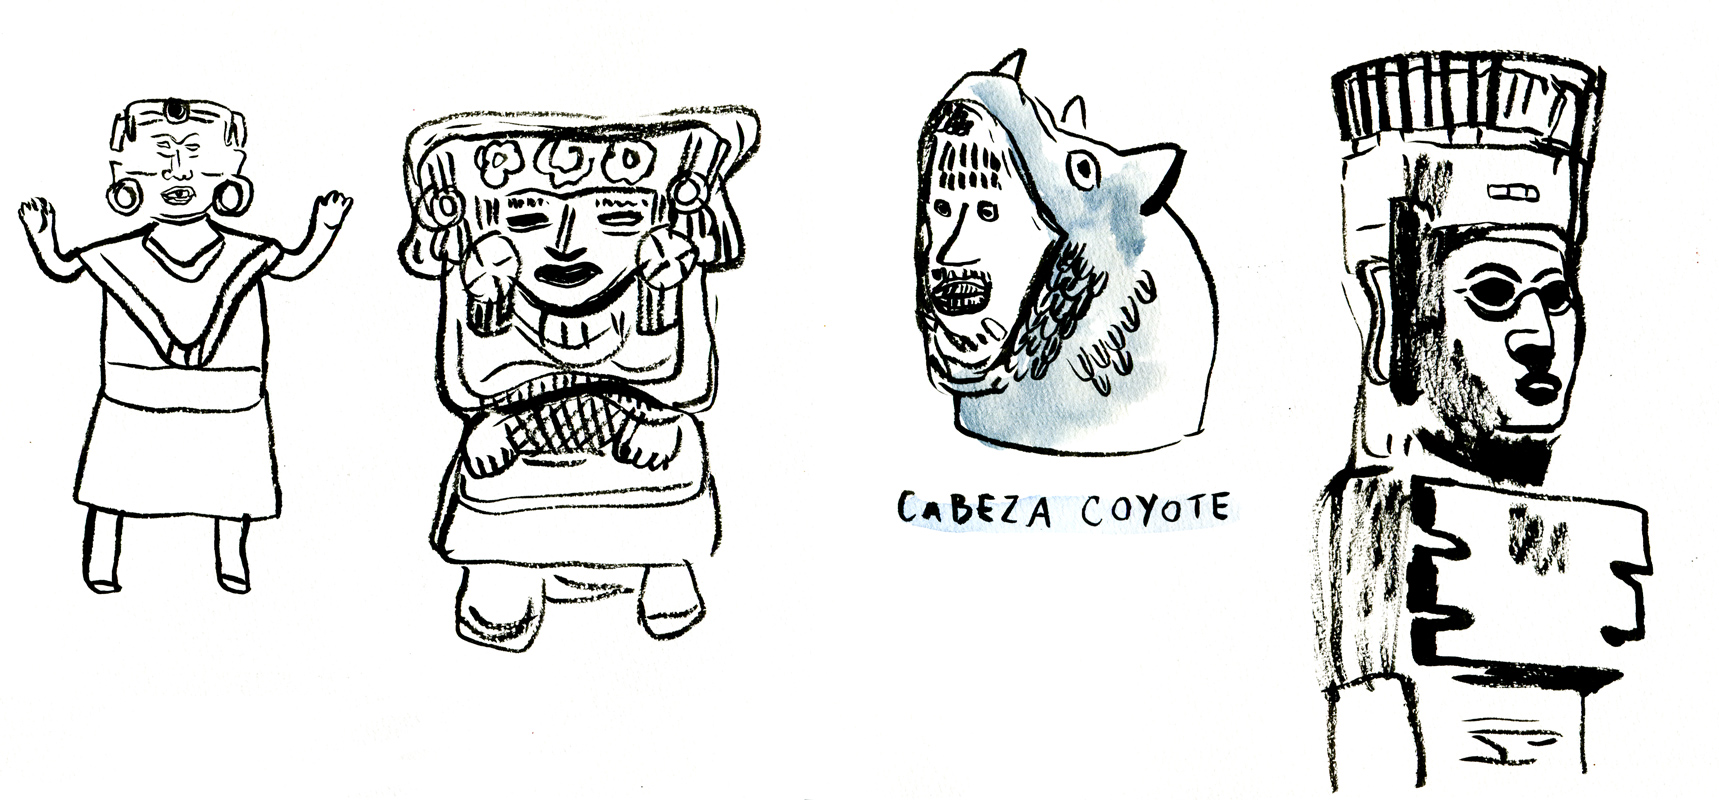 CABEZA COYOTE